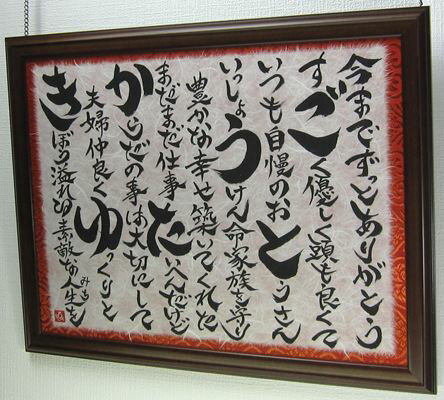 今までずっとありがとう
すごく優しく頭も良くて
いつも自慢のおとうさん
いっしょうけん命家族を守り
豊かな幸せ築いてくれた
まだまだ仕事たいへんだけど
からだの事は大切にして
夫婦仲良くゆっくりと
きぼう溢れる素敵な人生を
みち